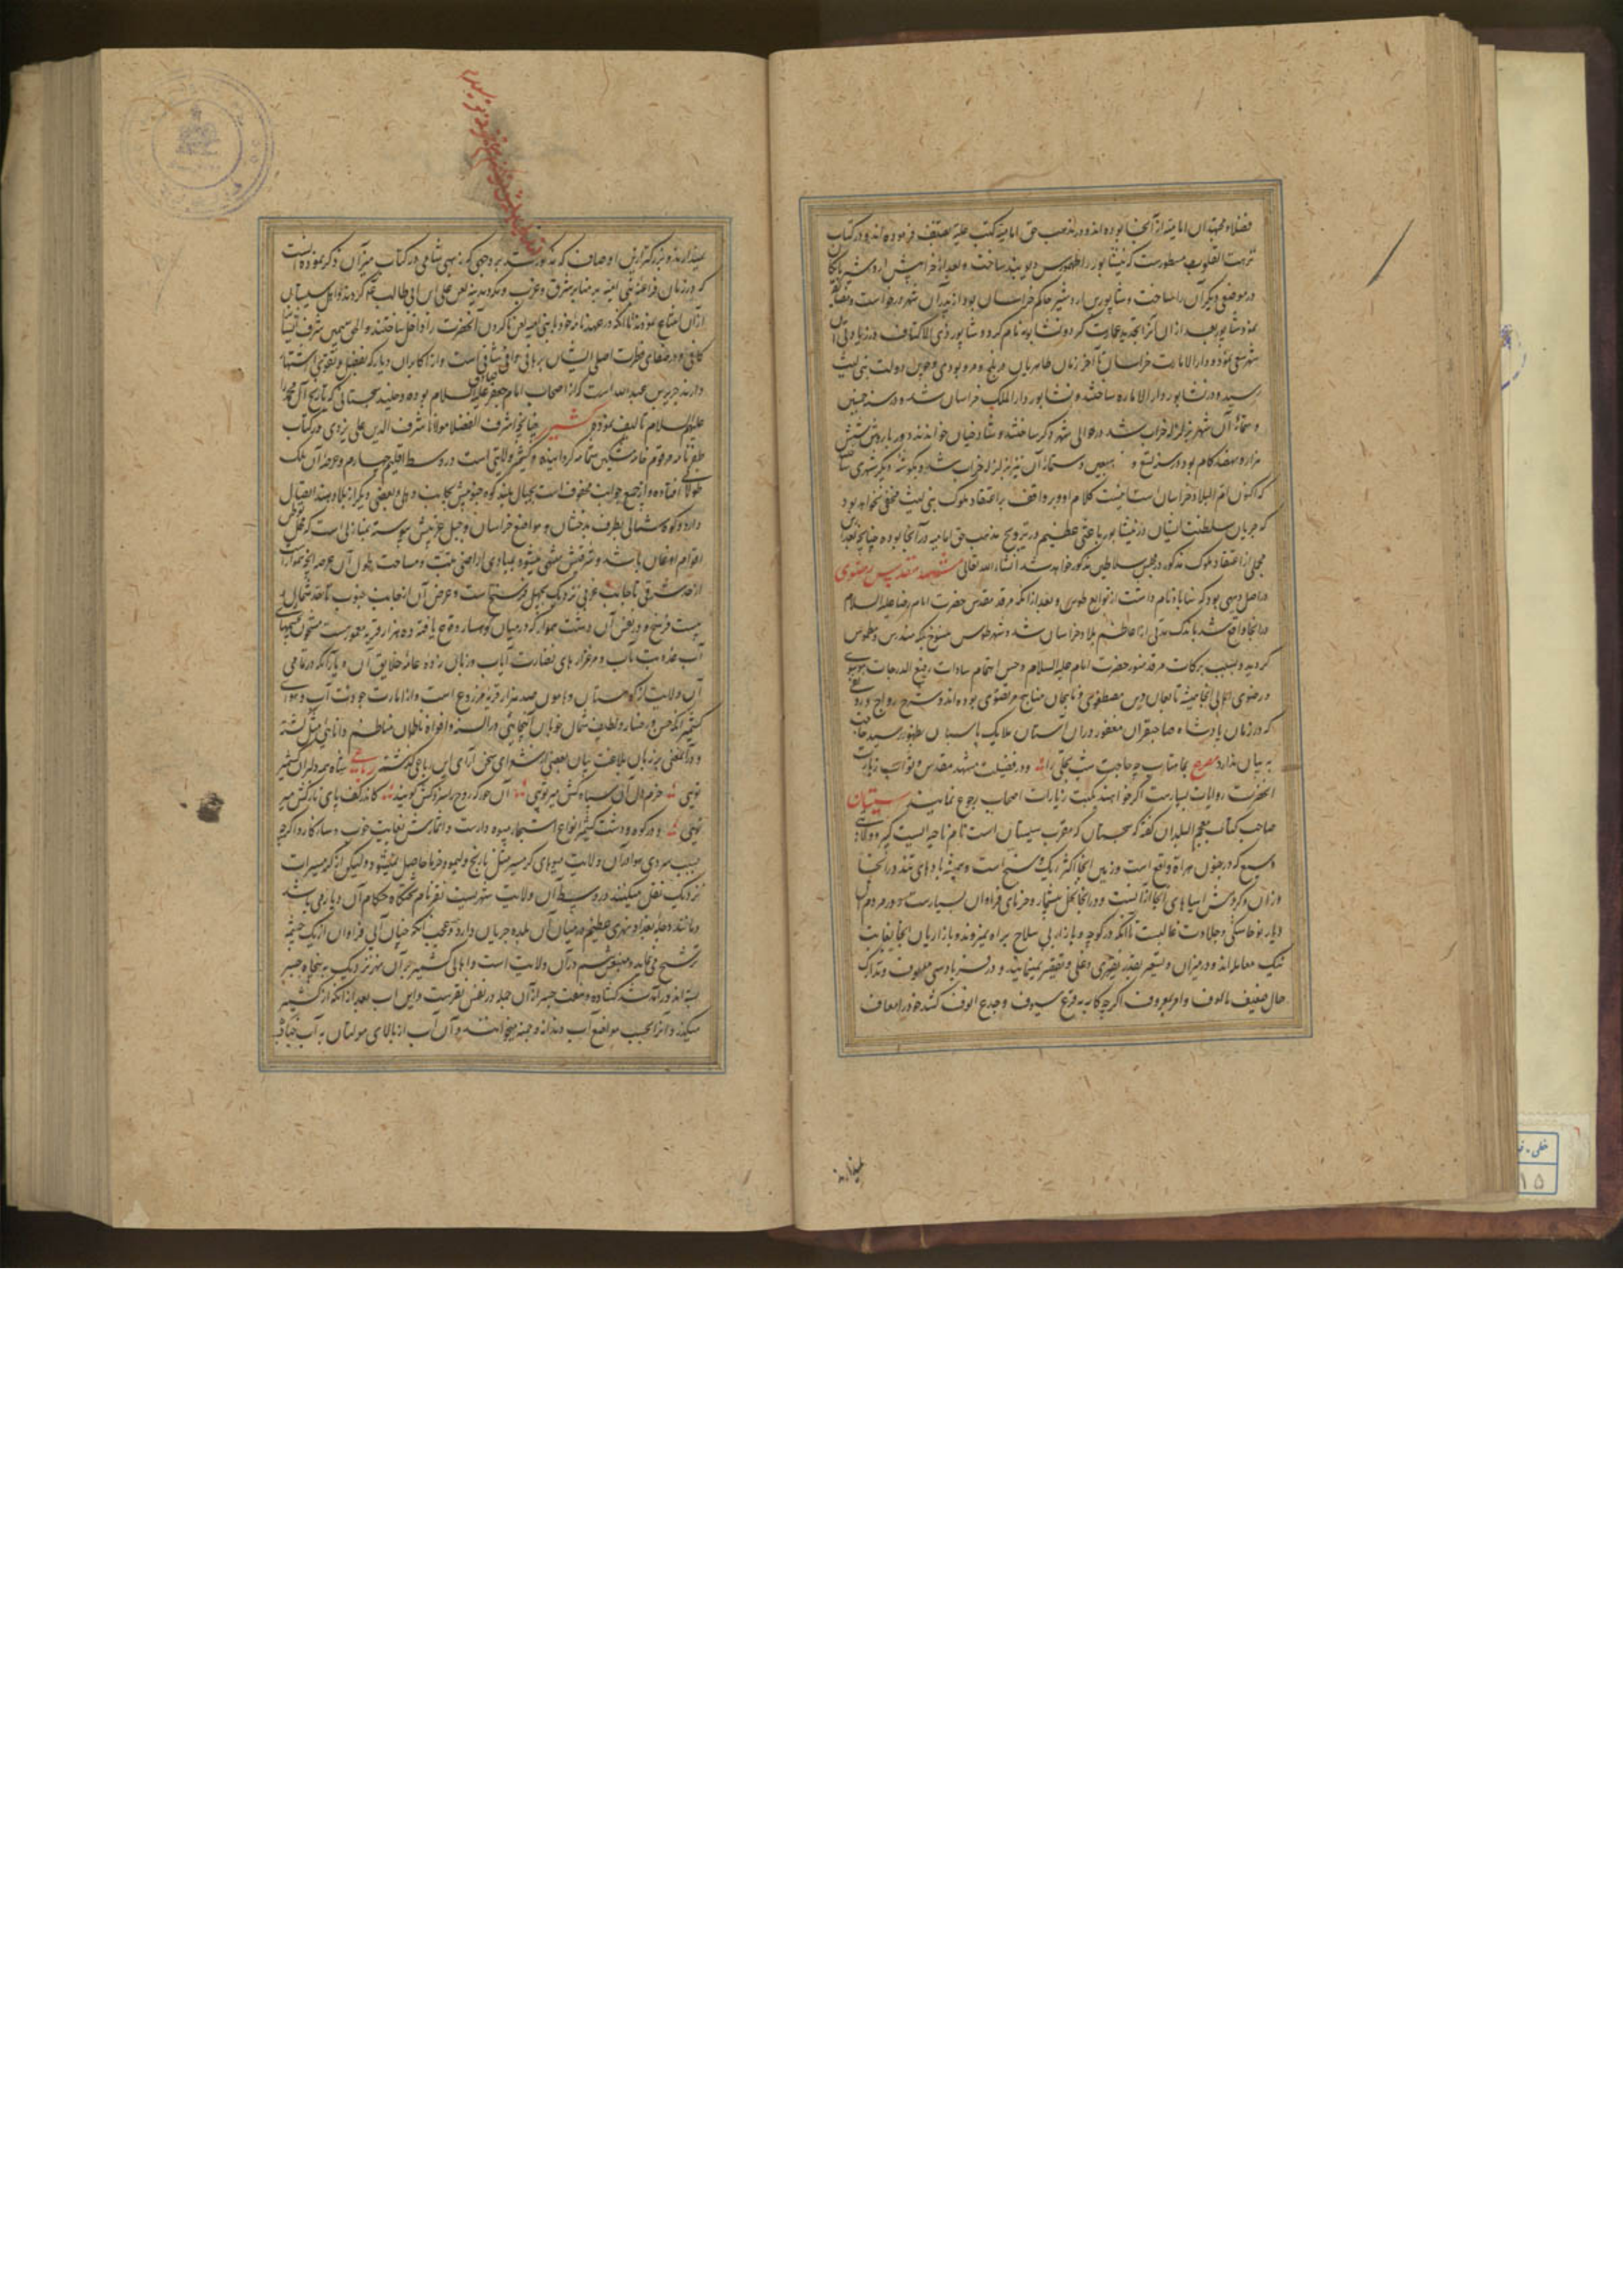 فضلا و مجتهدان امامیه از آنجا بوده اند و در مذهب حق امامیه کتب علیه تصنیف فرموده اند و در کتاب
نزهت القلوب مسطورست که نیشابور را طهمورس دیوبند ساخت و بعد از خرابیش اردشیر بابکان
در موضعی دیگر آن را ساخت و شاپور بن اردشیر حاکم خراسان بود از پدر آن شهر درخواست
نمود شاپور بعد از آن آنرا تجدید عمارت کرد و نشاپور نام کرد و شاپور ذی الاکتاف در زیادتی آن
شهر سعی نمود و دار الامارت خراسان تا آخر زمان طاهریان در بلخ و مرو بودی و چون دولت بنی لیث
رسید و در نشاپور دار الاماره ساختند و نشابور دار الملک خراسان شد و در سنه خمس
و ستمائه آن شهر بزلزله خراب شد در حوالی شهر دیگر ساختند و شادخیان خواندند دور بارویش شش
هزار و نهصد گام بود و در سنه تسع و سبعین و ستمائه آن نیز بزلزله خراب شد و بگوشه دیگر شهری ساختند
که اکنون ام البلاد خراسان است و بر واقف بر اعتقاد ملوک بنی لیث مخفی نخواهد بود
که جریان سلطنت ایشان در نیشابور باعثی عظیم در ترویج مذهب حق امامیه در آنجا بوده چنانچه بعد ازین
مجملی از اعتقاد ملوک مذکور در مجلس سلاطین مذکور خواهد شد انشاء الله تعالی مشهد مقدس رضوی
در اصل دیهی بود که سناباد نام داشت از توابع طوس و بعد از آنکه مرقد مقدس حضرت امام رضا علیه السلام
در آنجا واقع شد باندک مدتی از اعاظم بلاد خراسان شد و شهر طوس منسوخ بلکه مندرس و مطموس
گردید و بسبب برکات مرقد منور حضرت امام علیه السلام و حسن اهتمام سادات رفیع الدرجات موسوی
و رضوی اهالی آنجا همیشه تابعان دین مصطفوی و ناهجان مناهج مرتضوی بوده اند و شرح رواج و رونقی
که در زمان پادشاه صاحبقران مغفور در آن آستان ملایک پاسبان بظهور رسید حاجت
به بیان ندارد مصرع بماهتاب چه حاجت شب تجلی را و در فضیلت مشهد مقدس و ثواب زیارت
آنحضرت روایات بسیارست اگر خواهند بکتب زیارات اصحاب رجوع نمایند سیستان
صاحب کتاب معجم البلدان گفته که سجستان که معرب سیستان است نام ناحیه ایست کبیر و ولایتی
وسیع که در جنوب هراة واقع است و زمین آنجا اکثر ریگ و شنج است و همیشه بادهای تند در آنجا
وزان و گردش آسیاهای آنجا از آنست و در آنجا نخل بسیار و خرمای فراوان بسیارست و در مردم آن
دیار برخاستگی و جلادت غالبست تا آنکه در کوچه و بازار بی سلاح براه نمیروند و بازاریان آنجا بغایت
نیک معامله اند و در میزان و تسعیر بقدر نقیری دغلی و تقصیر نمینمایند و در فریادرسی ملهوف و تدارک
حال ضعیف مالوف و امر بمعروف اگر چه کار به قرع سیوف و جدع انوف کشد خود را معاف
نمیدارند
نمیدارند و بزرگترین اوصاف که مذکور شد بر وجهی که ذهبی شامی در کتاب میزان ذکر نموده آنست
که در زمان فراعنه بنی امیه بر منابر شرق و غرب و مکه و مدینه لعن علی بن ابی طالب علیه السلام کردند و اهل سیستان
از آن امتناع نمودند تا آنکه در عهدنامه خود با بنی امیه لعن ناکردن آنحضرت را داخل ساختند و الحق همین شرف ایشان را
کافی و در صفای فطرت اصلی ایشان برهانی وافی شافی است و از اکابران دیار که بفضل و تقوی اشتهار
دارند حریز بن عبدالله است که از اصحاب امام جعفر صادق علیه السلام بوده و خلیل سجستانی که تاریخ آل محمد را
علیهم السلام تالیف نموده کشمیر چنانچه اشرف الفضلا مولانا شرف الدین علی یزدی در کتاب
ظفرنامه مرقوم خامه مشکین شمامه گردانیده کشمیر ولایتی است در وسط اقلیم چهارم و عرصه آن ملک
طولانی افتاده و از جمیع جوانب محفوف است بجبال بلند کوه جنوبیش بجانب دهلی و بعضی دیگر از بلاد هند اتصال
دارد و کوه شمالی بطرف بدخشان و مواضع خراسان و جبل غربیش پیوسته بمنازلی است که محل توطن
اقوام اوغان باشد و شرقیش منتهی میشود بمبادی اراضی تبت و مساحت طول آن عرصه آنچه هموارست
از حد شرقی تا جانب غربی نزدیک بچهل فرسخ است و عرض آن از جانب جنوب تا حد شمال
بیست فرسخ و در نفس آن دشت هموار که در میان کوهسار وقوع یافته ده هزار قریه معمورست مشحون بچشمهای
آب عذوبت مآب و مرغزارهای نضارت آیات و زبان زده عامه خلایق آن دیار آنکه در تمامی
آن ولایت از کوهستان و هامون صد هزار قریه مزروع است و از امارت جودت آب و هوای
کشمیر آنکه حسن رخسار و لطف شمایل خوبان آنجایی در السنه و افواه ناظمان مناظم دانایی مثل گشته
و در آن معنی بر زبان بلاغت بیان بعضی از شعرای سخن آرای این رباعی گذشته رباعی شاه همه دلبران کشمیر
تویی خرم دل آن سپاه کش میر تویی آن حور که روح را سزد کش گویند کاندر کف پای نازکش میر
تویی و در کوه و دشت کشمیر انواع اشجار میوه دارست و اثمارش بغایت خوب و سازگار و اگر چه
بسبب سردی هوا در آن ولایت میوهای گرمسیر مثل نارنج و لیمو و خرما حاصل نمیشود و لیکن از گرمسیرات
نزدیک نقل میکنند در وسط آن ولایت شهریست نغز نام تختگاه حکام آن دیار می باشد
و مانند دجله بغداد نهری عظیم در میان آن بلده جریان دارد و عجب آنکه چنان آبی فراوان از یک چشمه
ترشح می نماید و منبعش هم در آن ولایت است و اهالی کشمیر بر آن نهر نزدیک به پنجاه جسر
بسته اند و راه آمد شد گشاده و هفت جسر از آن جمله در نفس نغرست و این آب بعد از آنکه از کشمیر
میگذرد آنرا بحسب مواضع آب دندانه و جمد میخوانند و آن آب از بالای مولتان به آب چناو
خطی
۱۵